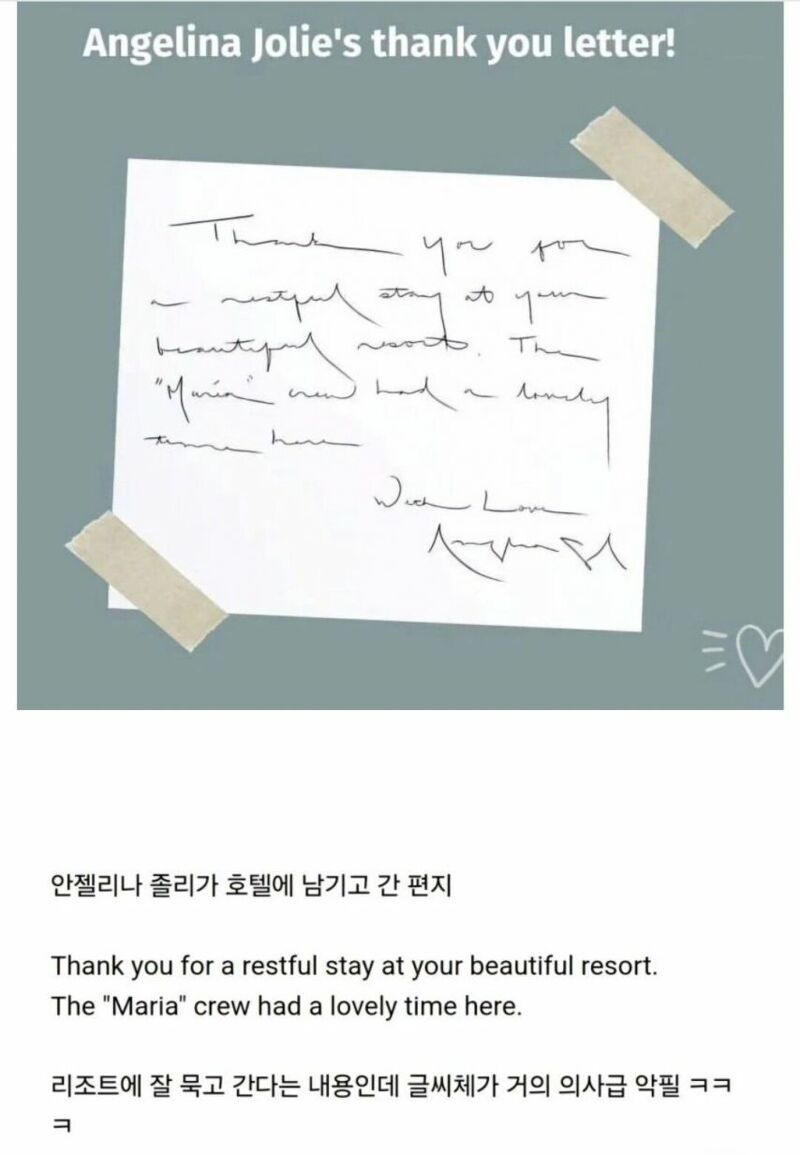 Angelina Jolie's thank you letter!
Thank you for
a restful stay at your
beautiful resort. The
"Maria" crew had a lovely
time here
With Love
안젤리나 졸리가 호텔에 남기고 간 편지
Thank you for a restful stay at your beautiful resort.
The "Maria" crew had a lovely time here.
리조트에 잘 묵고 간다는 내용인데 글씨체가 거의 의사급 악필 ㅋㅋ
ㅋ